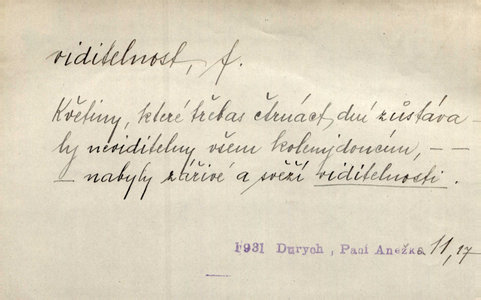 viditelnost, f.
Květiny, které třebas čtrnáct dní zůstáva-
ly neviditelny všem kolemjdoucím, – –
– nabyly zářivé a svěží viditelnosti.
1931 Durych, Paní Anežka 11, 17